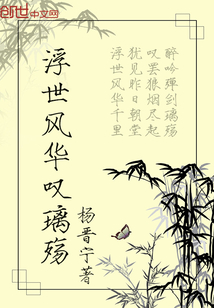 创世中文网
醉吟弹剑璃殇
叹罢狼烟尽起
犹见昨日朝堂
浮世风华千里
浮世风华叹璃殇
杨晋宁著